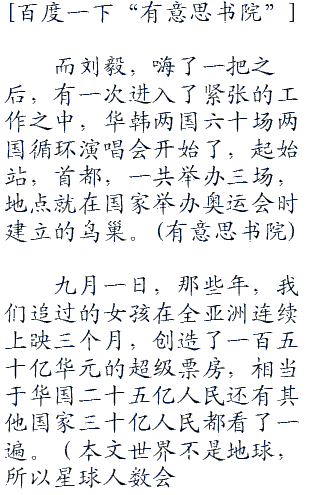 [百度一下“有意思书院”]
而刘毅，嗨了一把之
后，有一次进入了紧张的工
作之中，华韩两国六十场两
国循环演唱会开始了，起始
站，首都，一共举办三场，
地点就在国家举办奥运会时
建立的鸟巢。(有意思书院)
九月一日，那些年，我
们追过的女孩在全亚洲连续
上映三个月，创造了一百五
十亿华元的超级票房，相当
于华国二十五亿人民还有其
他国家三十亿人民都看了一
遍。（本文世界不是地球，
所以星球人数会